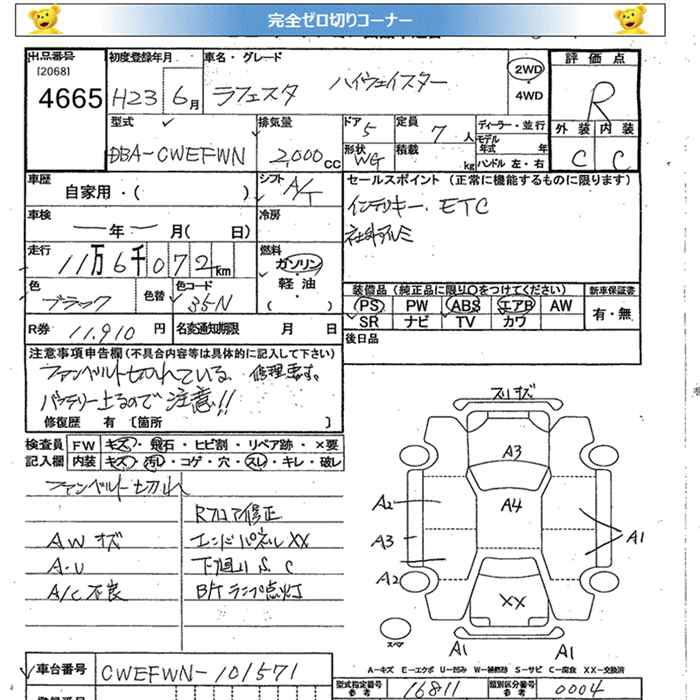 完全ゼロ切りコーナー
出品番号 初度登録年月 車名・グレード 2WD 評価点
[2068]
4665 H23 6月 ラフェスタ ハイウェイスター 4WD R
型式 排気量 ドア 定員 ディーラー・並行 外装 内装
DBA-CWEFWN 2,000cc 5 7人 モデル年式 年 C C
形状 WG 積載 kg ハンドル 左・右
車歴 シフト セールスポイント(正常に機能するものに限ります)
自家用・( ) A/T インテリキー. ETC
車検 冷房 社外アルミ
年 月( 日)
走行 燃料
11万6千072km ガソリン・軽油・( )
色 色替 色コード 装備品(純正品に限り○をつけてください) 新車保証書
ブラック 35N PS PW ABS エアB AW 有・無
SR ナビ TV カワ
R券 11,910円 名変通知期限 月 日 後日品
注意事項申告欄(不具合内容等は具体的に記入して下さい)
ファンベルト切れている. 修理要す.
バッテリー上るので注意!!
修復歴 有〔箇所 〕
検査員 FW キズ・飛石・ヒビ割・リペア跡・×要
記入欄 内装 キズ・汚れ・コゲ・穴・スレ・キレ・破レ
ファンベルト切れ
Rフロア修正
AW キズ エンドパネルXX
A・U 下廻り S. C
A/C不良 B/Tランプ点灯
スリキズ
A3
A2 A4
A3 A1
A2
XX
スペア A1 A1
車台番号 CWEFWN-101571
A-キズ E-エクボ U-凹み W-補修跡 S-サビ C-腐食 XX-交換済
型式指定番号 参考 16811 類別区分番号 参考 0004